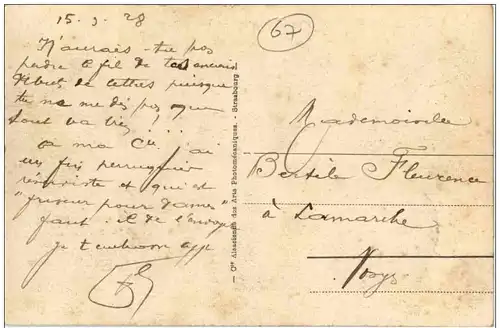 15.3.28
67
N'aurais-tu pas
perdu le fil de
de lettres puisque
tu ne me dis pas que
tout va très ! . . .
a ma Cie j'ai
un fin perruquier
réserviste et qui est
"friseur pour dames"
faut-il te l'envoyer
je t'embrasse
— Cie Alsacienne des Arts Photomécaniques. - Strasbourg
Mademoiselle
Bertile Fleurence
à Lamarche
Vosges